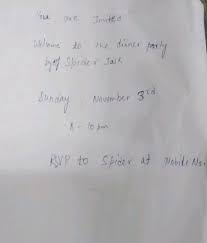 You are Invited
Welcome to the dinner party
by Spider Jack
Sunday November 3rd
8-10pm
RSVP to Spider at Mobile No.